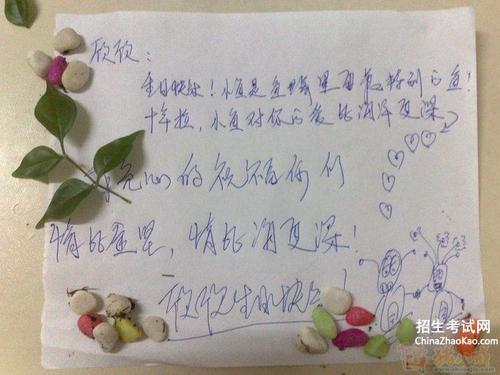 欣欣：
生日快乐！小鱼是鱼缸里面最特别的鱼！
十年拉，小鱼对你的爱比海洋更深
衷心的祝福你们
情比金坚，情比海更深！
欣欣生日快乐！
招生考试网
ChinaZhaoKao.com